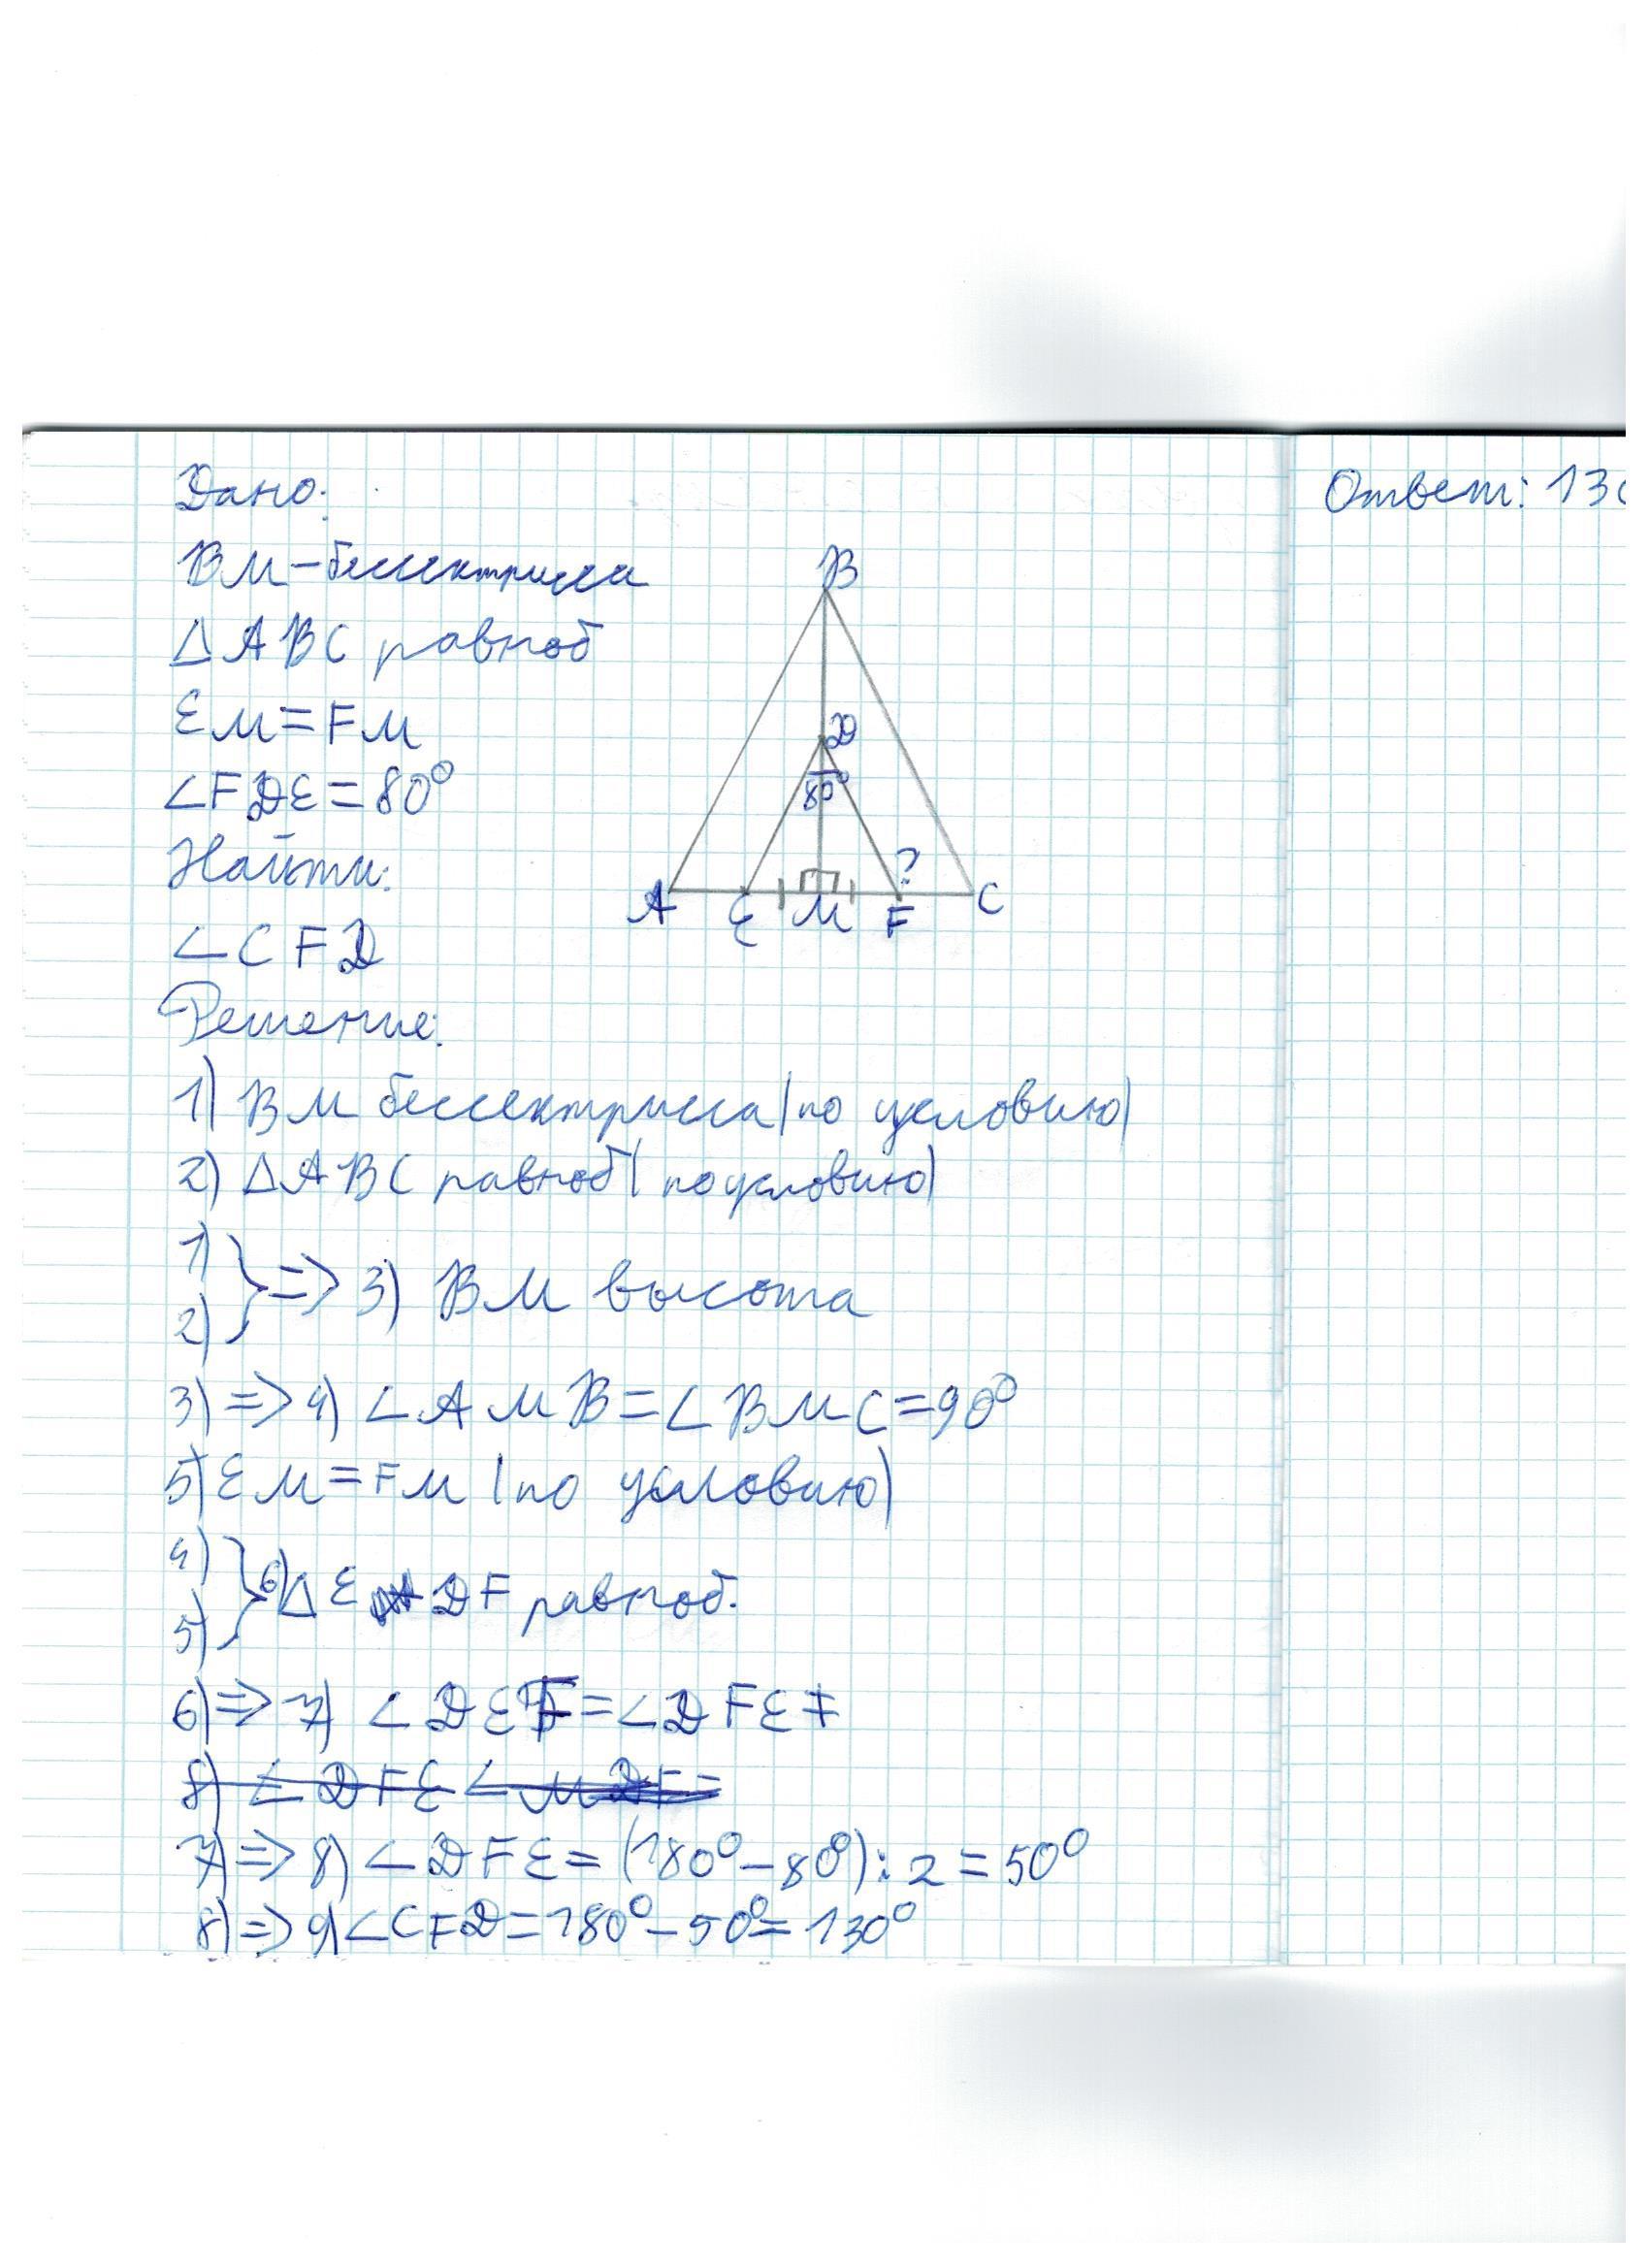 Дано:
BM – бессектрисса
△ABC равноб
EM = FM
∠FDE = 80°
Найти:
∠CFD
Решение:
1) BM бессектрисса (по условию)
2) △ABC равноб (по условию)
1)
2) } => 3) BM высота
3) => 4) ∠AMB = ∠BMC = 90°
5) EM = FM (по условию)
4)
5) } 6) △EDF равноб.
6) => 7) ∠DEF = ∠DFE
8) ∠DFE ∠MDF =
7) => 8) ∠DFE = (180° – 80°) : 2 = 50°
8) => 9) ∠CFD = 180° – 50° = 130°
B
D
80°
?
A E M F C
Ответ: 130